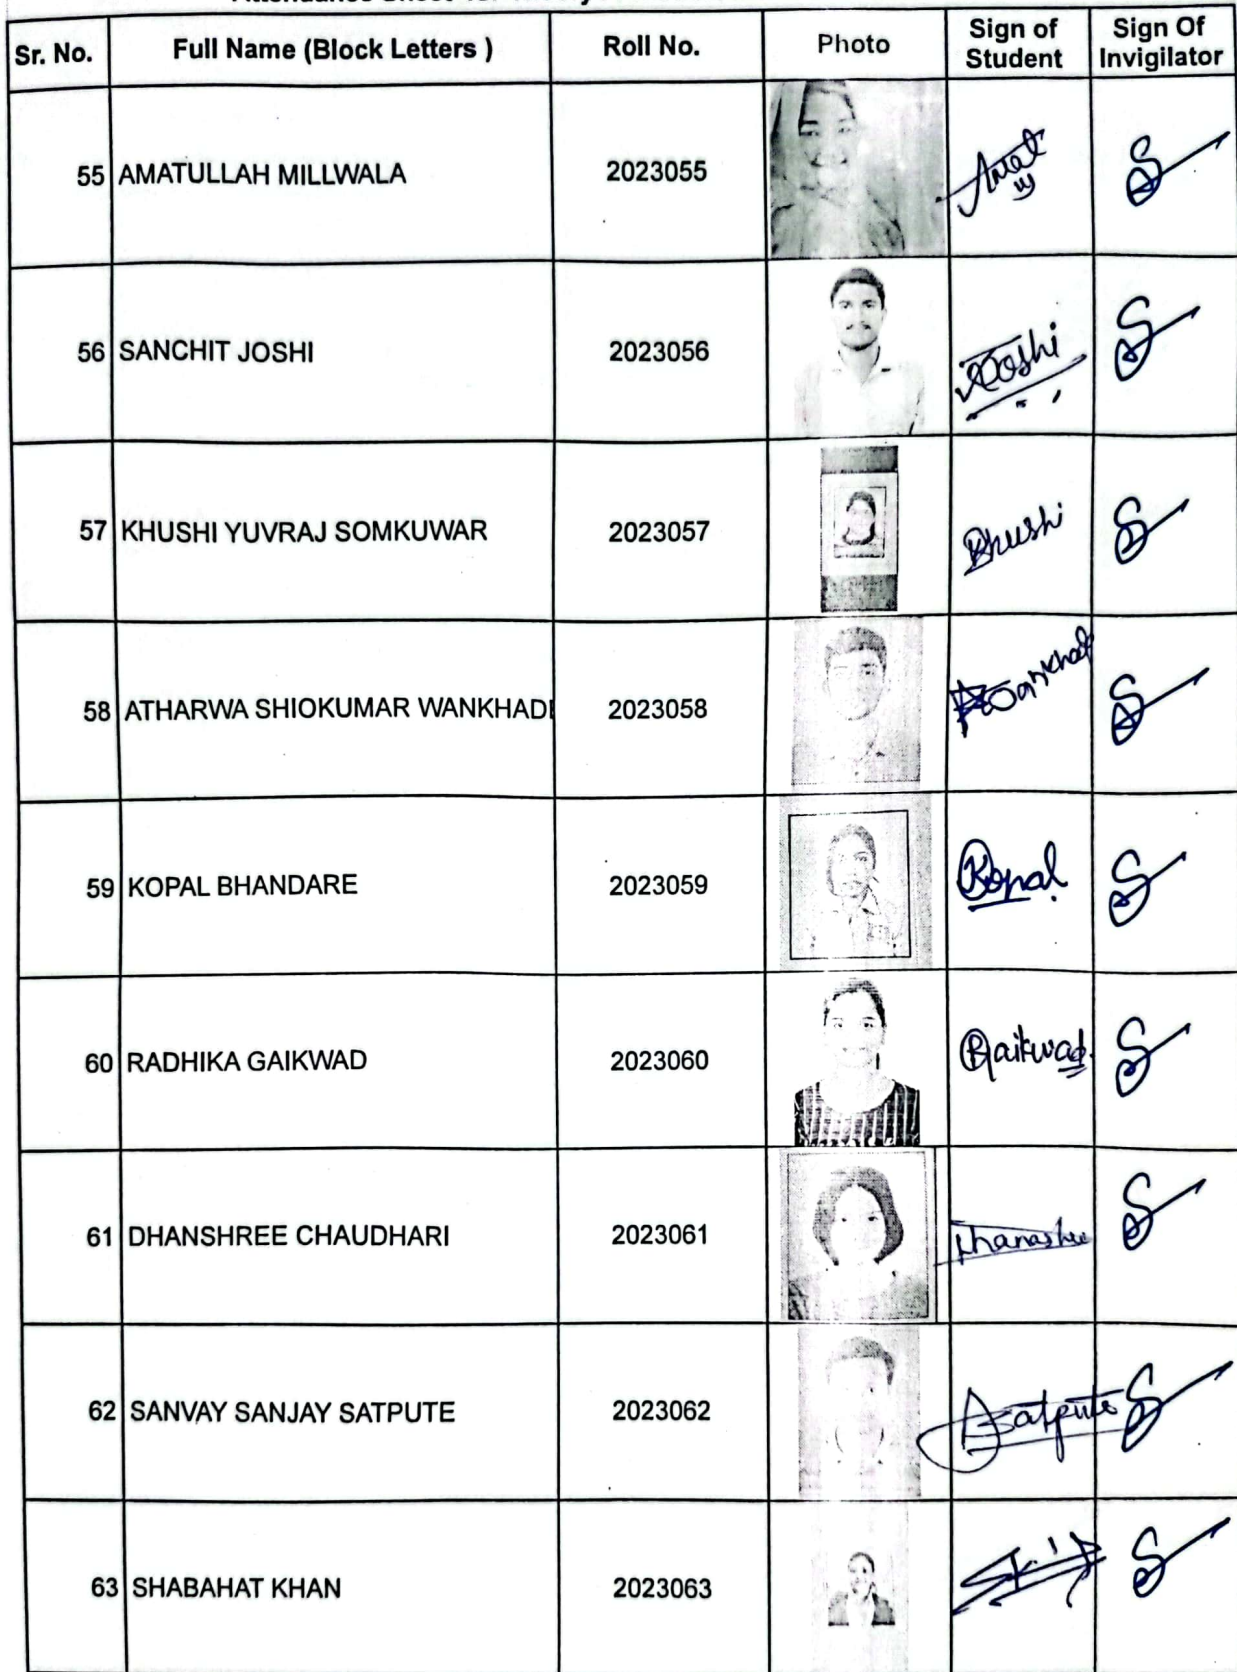 Sr. No. Full Name (Block Letters ) Roll No. Photo Sign of Student Sign Of Invigilator
55 AMATULLAH MILLWALA 2023055
56 SANCHIT JOSHI 2023056 Joshi
57 KHUSHI YUVRAJ SOMKUWAR 2023057 Khushi
58 ATHARWA SHIOKUMAR WANKHAD 2023058
59 KOPAL BHANDARE 2023059 Kopal
60 RADHIKA GAIKWAD 2023060 Gaikwad
61 DHANSHREE CHAUDHARI 2023061 Dhanashree
62 SANVAY SANJAY SATPUTE 2023062 Satpute
63 SHABAHAT KHAN 2023063